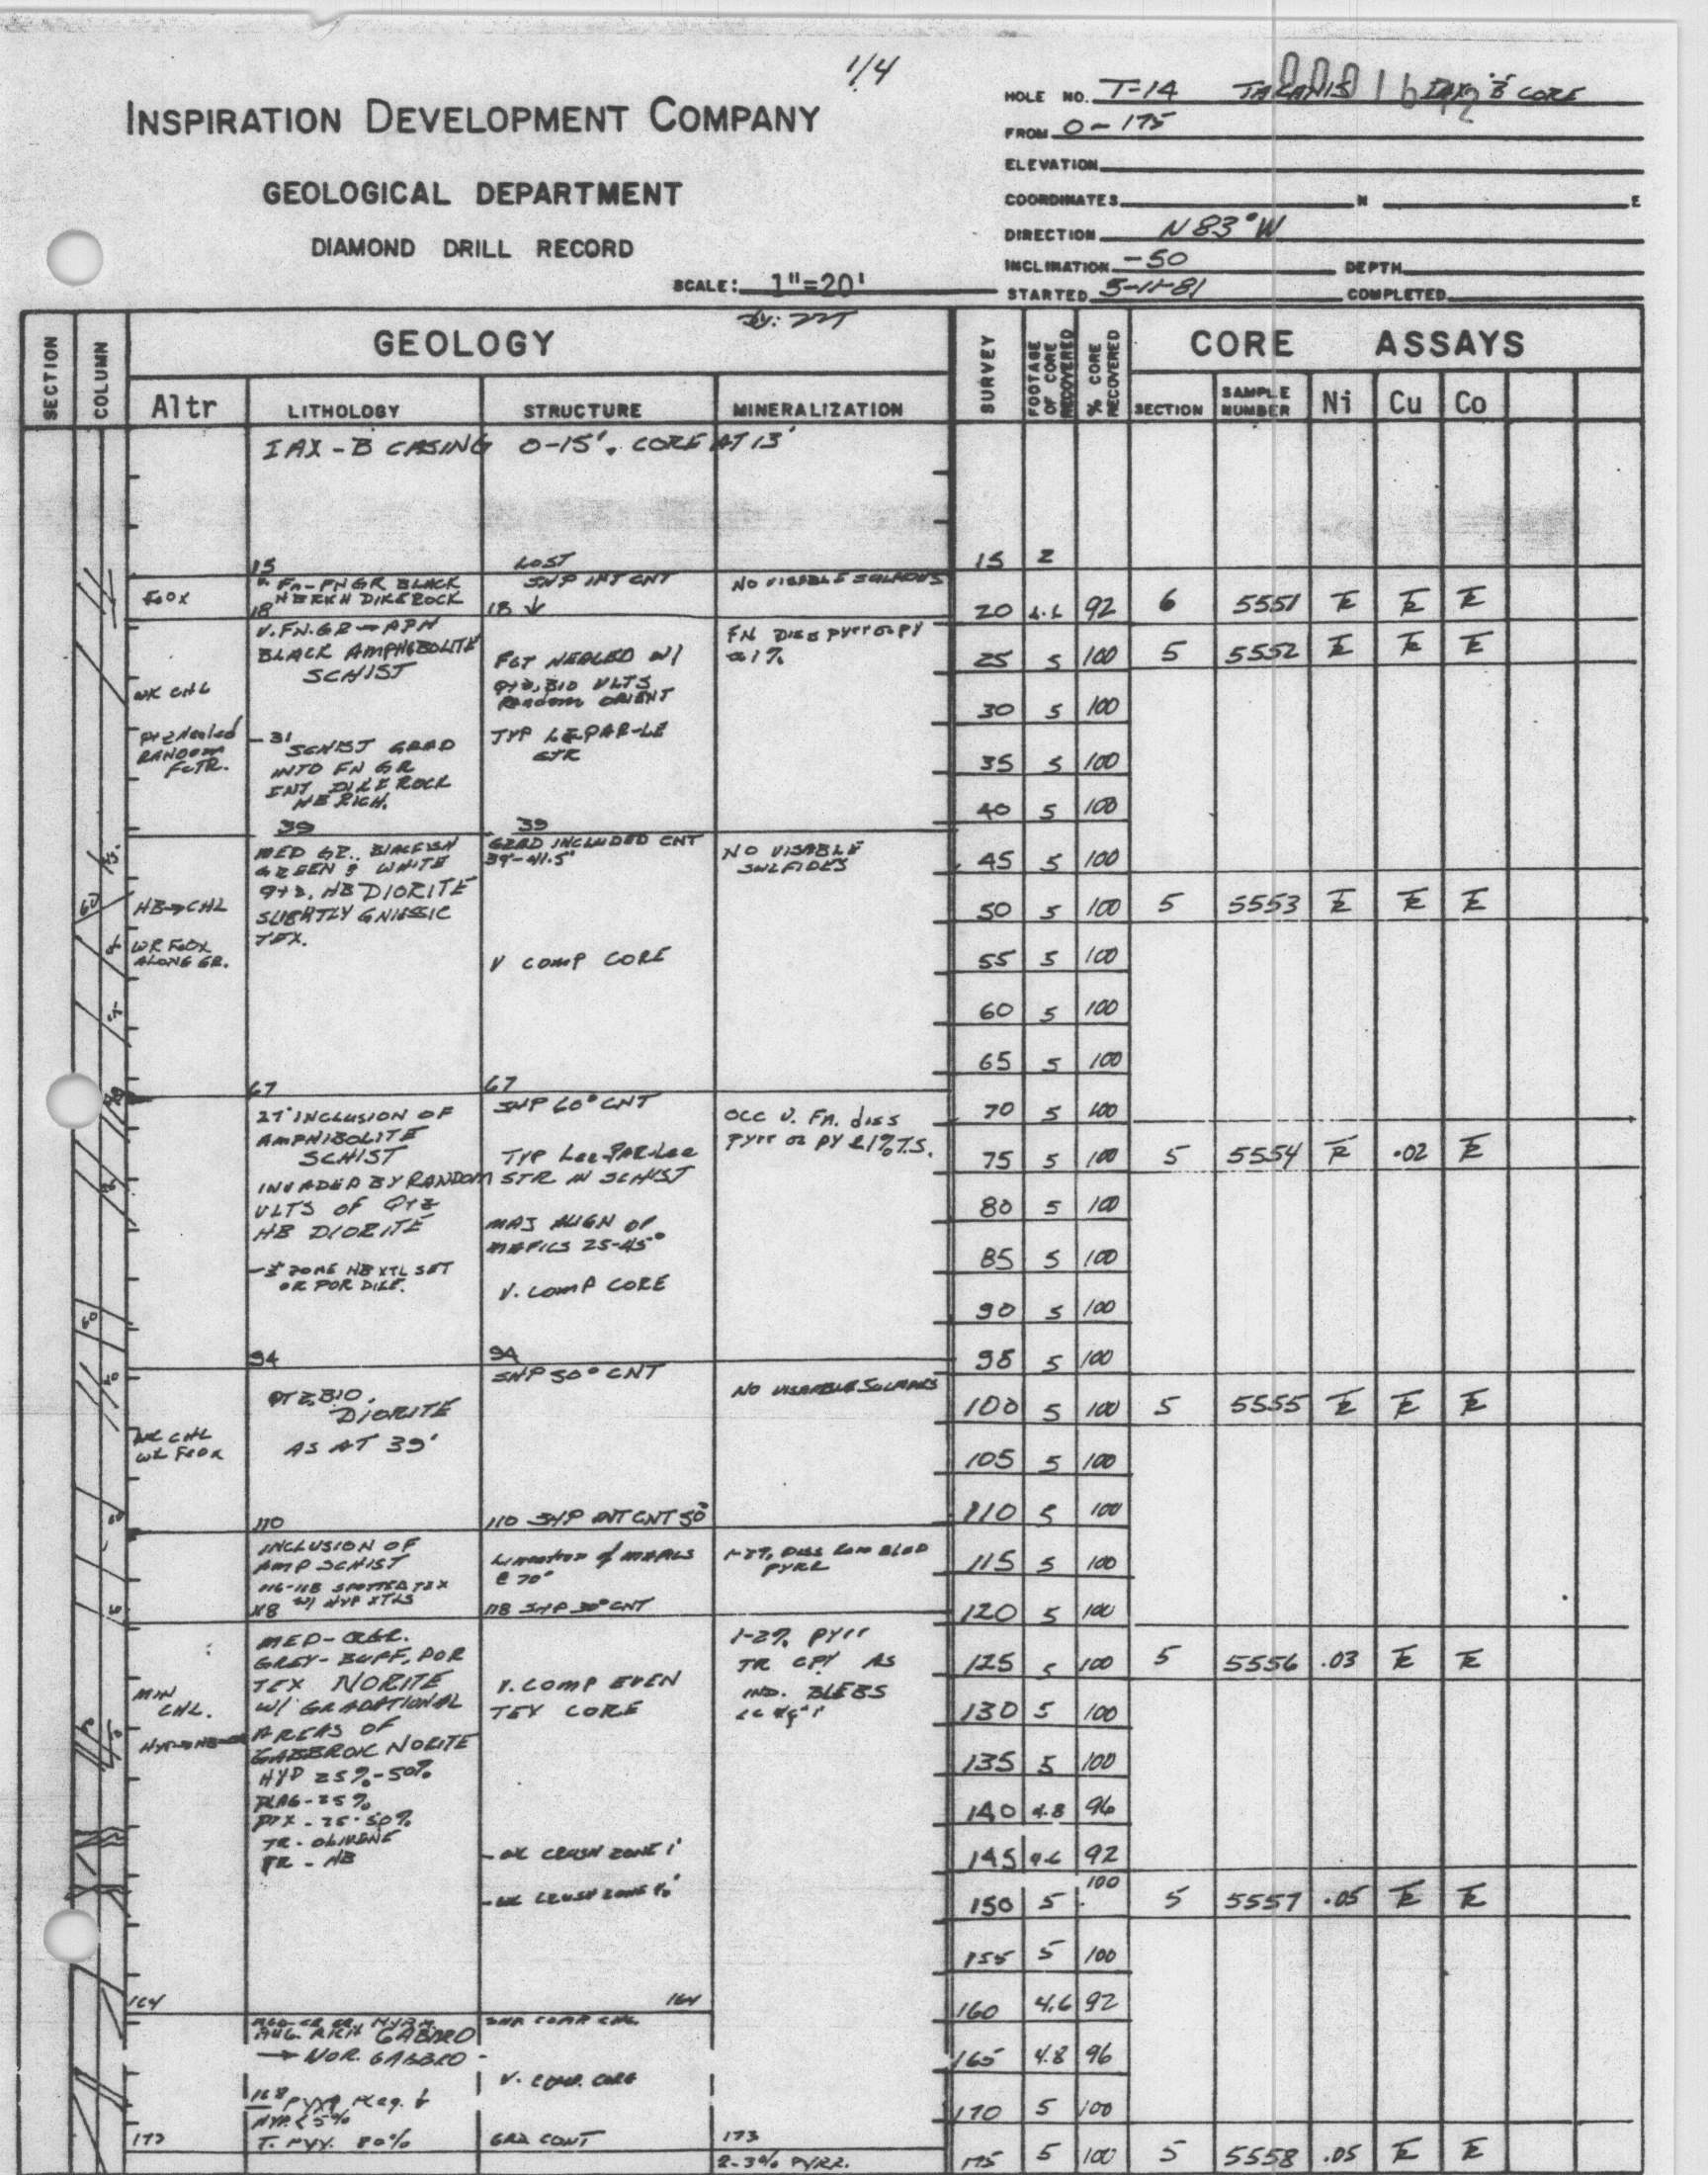 1/4
INSPIRATION DEVELOPMENT COMPANY
GEOLOGICAL DEPARTMENT
DIAMOND DRILL RECORD
SCALE: 1"=20'
HOLE NO. T-14 B CORE
FROM 0-175
ELEVATION
COORDINATES N E
DIRECTION N 83° W
INCLINATION -50 DEPTH
STARTED 5-11-81 COMPLETED
SECTION COLUMN GEOLOGY SURVEY FOOTAGE OF CORE RECOVERED % CORE RECOVERED CORE ASSAYS
Altr LITHOLOGY STRUCTURE MINERALIZATION SECTION SAMPLE NUMBER Ni Cu Co
IAX-B CASING 0-15'. CORE AT 13'
15 LOST 15 2
FN GR BLACK SHP INT CNT NO VISABLE
FeOX DIKEROCK
18 18 20 4.6 92 6 5551 Tr Tr Tr
V. FN. GR → APH FN DISS PYrr or PY
BLACK AMPHIBOLITE ≈1% 25 5 100 5 5552 Tr Tr Tr
SCHIST FCT HEALED W/
WK CHL qtz, BIO VLTS
Random ORIENT 30 5 100
RANDOM FCTR. - 31 TYP LE-PAR-LE
SCHIST GRAD STR
INTO FN GR 35 5 100
INT DIKE ROCK
HB RICH. 40 5 100
39 39
MED GR. BLACKISH GRAD INCLUDED CNT NO VISABLE
GREEN & WHITE 39'-41.5' SULFIDES 45 5 100
qtz, HB DIORITE
HB→CHL SLIGHTLY GNIESSIC 50 5 100 5 5553 Tr Tr Tr
WK FeOX TEX.
ALONG GR. V COMP CORE 55 5 100
60 5 100
65 5 100
67 67
27' INCLUSION OF SHP 60° CNT OCC V. FN. diss 70 5 100
AMPHIBOLITE PYrr or PY <1% T.S.
SCHIST TYP Lee-PAR-Lee 75 5 100 5 5554 Tr .02 Tr
INVADED BY RANDOM STR IN SCHIST
VLTS OF QTZ 80 5 100
HB DIORITE MAJ ALIGN OF
MAFICS 25-45° 85 5 100
ZONE HB XTL
OR POR DIKE. V. COMP CORE 90 5 100
94 94 95 5 100
SHP 50° CNT
QTZ, BIO, NO VISABLE
DIORITE 100 5 100 5 5555 Tr Tr Tr
WK CHL AS AT 39'
WK FeOX 105 5 100
110 110 SHP INT CNT 50° 110 5 100
INCLUSION OF Lineation of MAFICS DISS BLEB
AMP SCHIST @ 70° PYRR 115 5 100
116-118 SPOTTED TEX
118 W/ HYP XTLS 118 SHP 30° CNT 120 5 100
MED-CRGR. 1-2% PYrr
GREY-BUFF, POR TR CPY AS 125 5 100 5 5556 .03 Tr Tr
TEX NORITE V. COMP EVEN IND. BLEBS
MIN CHL. W/ GRADATIONAL TEX CORE 130 5 100
AREAS OF
GABBROIC NORITE 135 5 100
HYP 25%-50%
PLAG-25% 140 4.8 96
PYX - 25-50%
TR - OLIVENE - WK CRUSH ZONE 1' 145 4.6 92
TR - HB
- WK CRUSH ZONE 150 5 100 5 5557 .05 Tr Tr
155 5 100
164 164 160 4.6 92
GABBRO
→ NOR. GABBRO - 165 4.8 96
V. COMP. CORE
168 170 5 100
HYP. <5%
173 T. PYX. 80% GRA CONT 173
2-3% PYRR. 175 5 100 5 5558 .05 Tr Tr